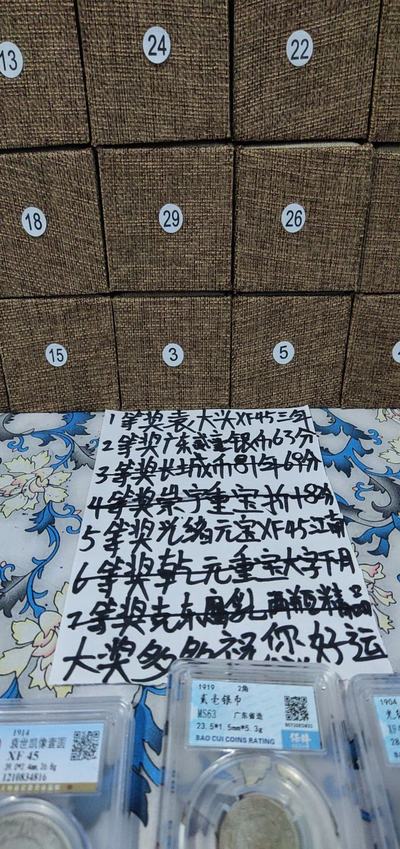 13
24
22
18
29
26
15
3
5
1等奖袁大头XF45三年
2等奖广东贰毫银币63分
3等奖长城币81年69分
4等奖崇宁重宝折十82分
5等奖光绪元宝XF45江南
6等奖乾元重宝大字下月
大奖多多祝您好运
1914
袁世凯像壹圆
XF 45
1210834816
1919 2角
贰毫银币
MS63 广东省造
23.5*1.5mm*5.3g
BAO CUI COINS RATING
保粹
1904